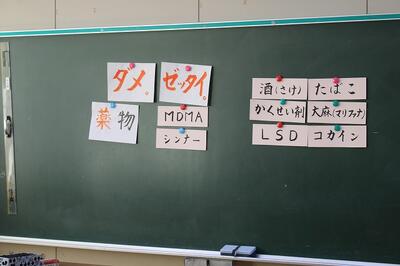 ダメ。
ゼッタイ。
薬物
MDMA
シンナー
酒(さけ)
たばこ
かくせい剤
大麻(マリファナ)
LSD
コカイン